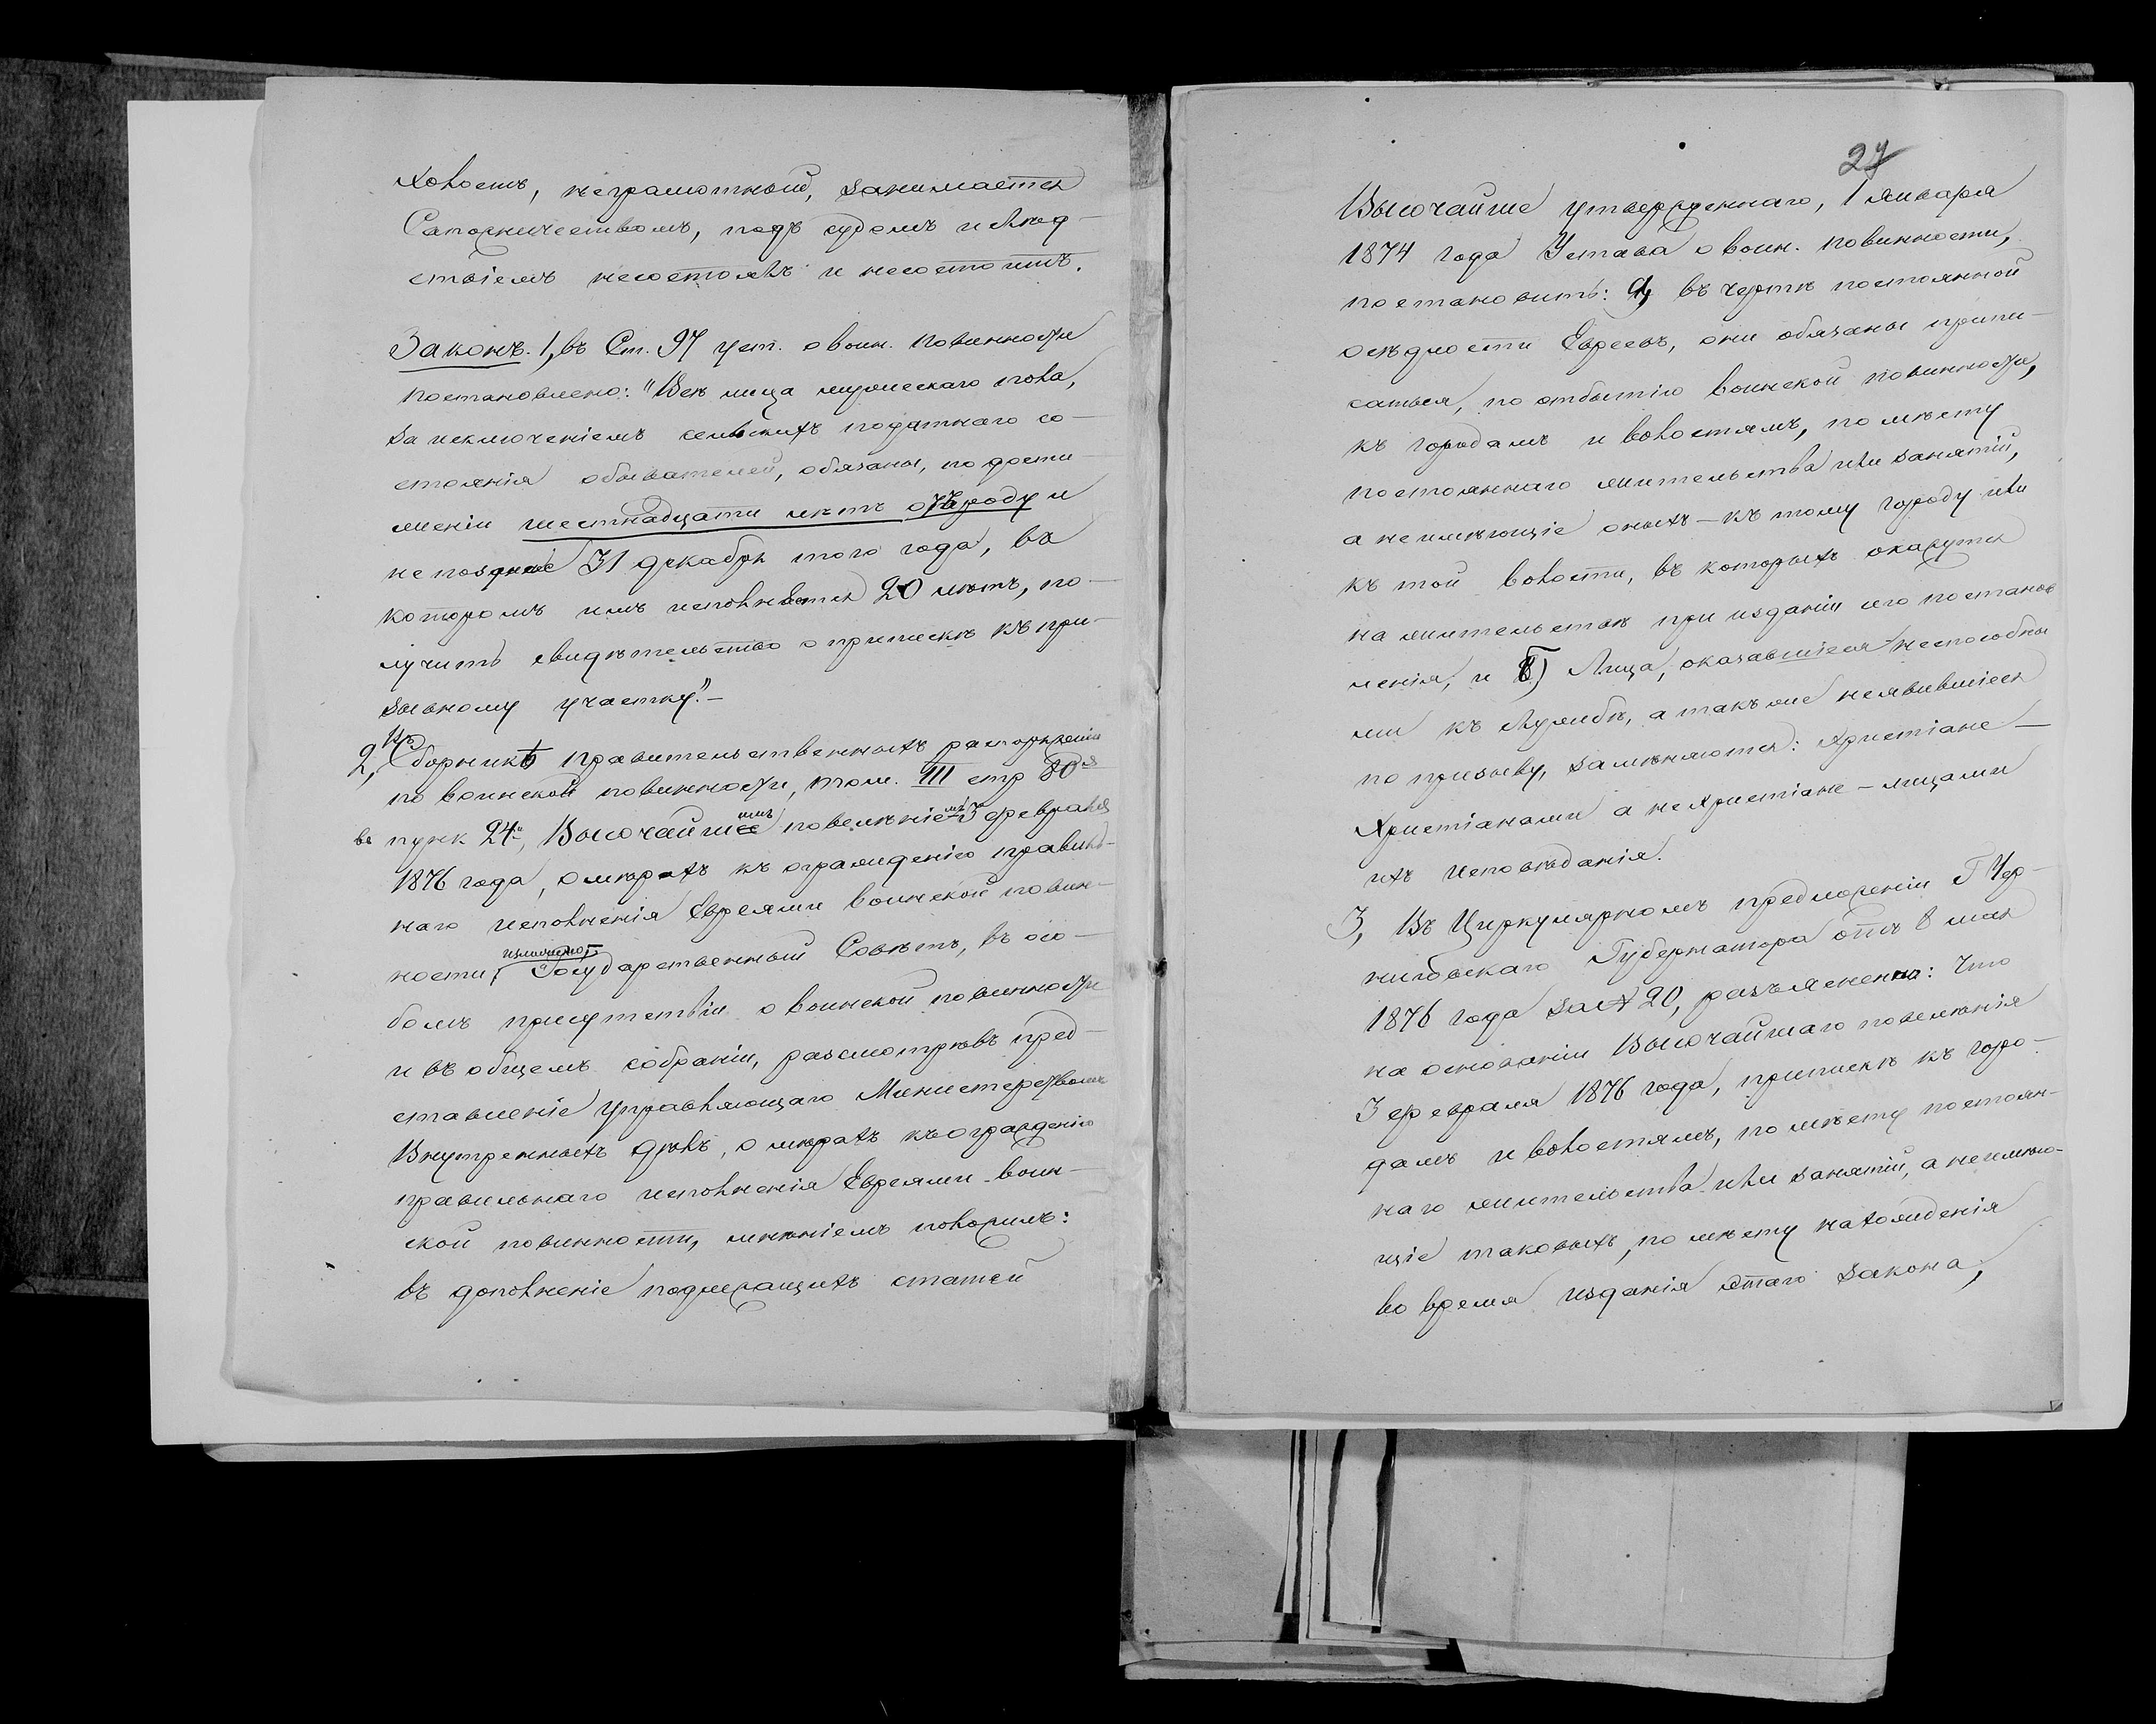 холостъ, неграмотный, занимается
Сапожничествомъ, подъ судомъ и слѣд-
ствіемъ несостоялъ и несостоитъ.
Законъ. 1, въ Ст. 97 уст. о воин. повинности
постановлено: "Всѣ лица мужескаго пола,
за исключеніемъ сельскихъ податнаго со-
стоянія обывателей, обязаны, по дости-
женіи шестнадцати лѣтъ отъ роду и
не позднее 31 декабря того года, въ
которомъ имъ исполняется 20 лѣтъ, по-
лучить свидѣтельство о припискѣ къ при-
зывному участку".-
2, Въ Сборникѣ правительственныхъ распоряженій
по воинской повинности, том. III стр 80я
въ пунк 24й, Высочайшимъ повелѣніемъ 3 февраля
1876 года, о мѣрахъ къ огражденію правиль-
наго исполненія Евреями воинской повин-
ности, изложено: "Государственный Совѣтъ, въ осо-
бомъ присутствіи о воинской повинности
и въ общемъ собраніи, разсмотрѣвъ пред-
ставленіе управляющаго Министерствомъ
Внутреннихъ дѣлъ, о мѣрахъ къ огражденію
правильнаго исполненія Евреями воин-
ской повинности, мнѣніемъ положилъ:
въ дополненіе подлежащихъ статей
27
Высочайше утвержденнаго, 1 Января
1874 года Устава о воин. повинности,
постановить: а, въ чертѣ постоянной
осѣдлости Евреевъ, они обязаны припи-
саться, по отбытію воинской повинности,
къ городамъ и волостямъ, по мѣсту
постояннаго жительства или занятій,
а неимѣющіе оныхъ - къ тому городу или
къ той волости, въ которыхъ окажутся
на жительствѣ при изданіи сего постанов
ленія, и Б) Лица, оказавшіеся неспособны
ми къ службѣ, а также неявившіеся
по призыву, замѣняются: Христіане -
Христіанами а не Христіане - лицами
ихъ исповѣданія.
3, Въ Циркулярномъ предложеніи Г Чер-
ниговскаго Губернатора отъ 8 мая
1876 года за № 20, разъяснено: что
на основаніи Высочайшаго повелѣнія
3 февраля 1876 года, припискѣ къ горо-
дамъ и волостямъ, по мѣсту постоян-
наго жительства или занятій, а неимѣю-
щіе таковыхъ, по мѣсту нахожденія
во время изданія этаго закона,